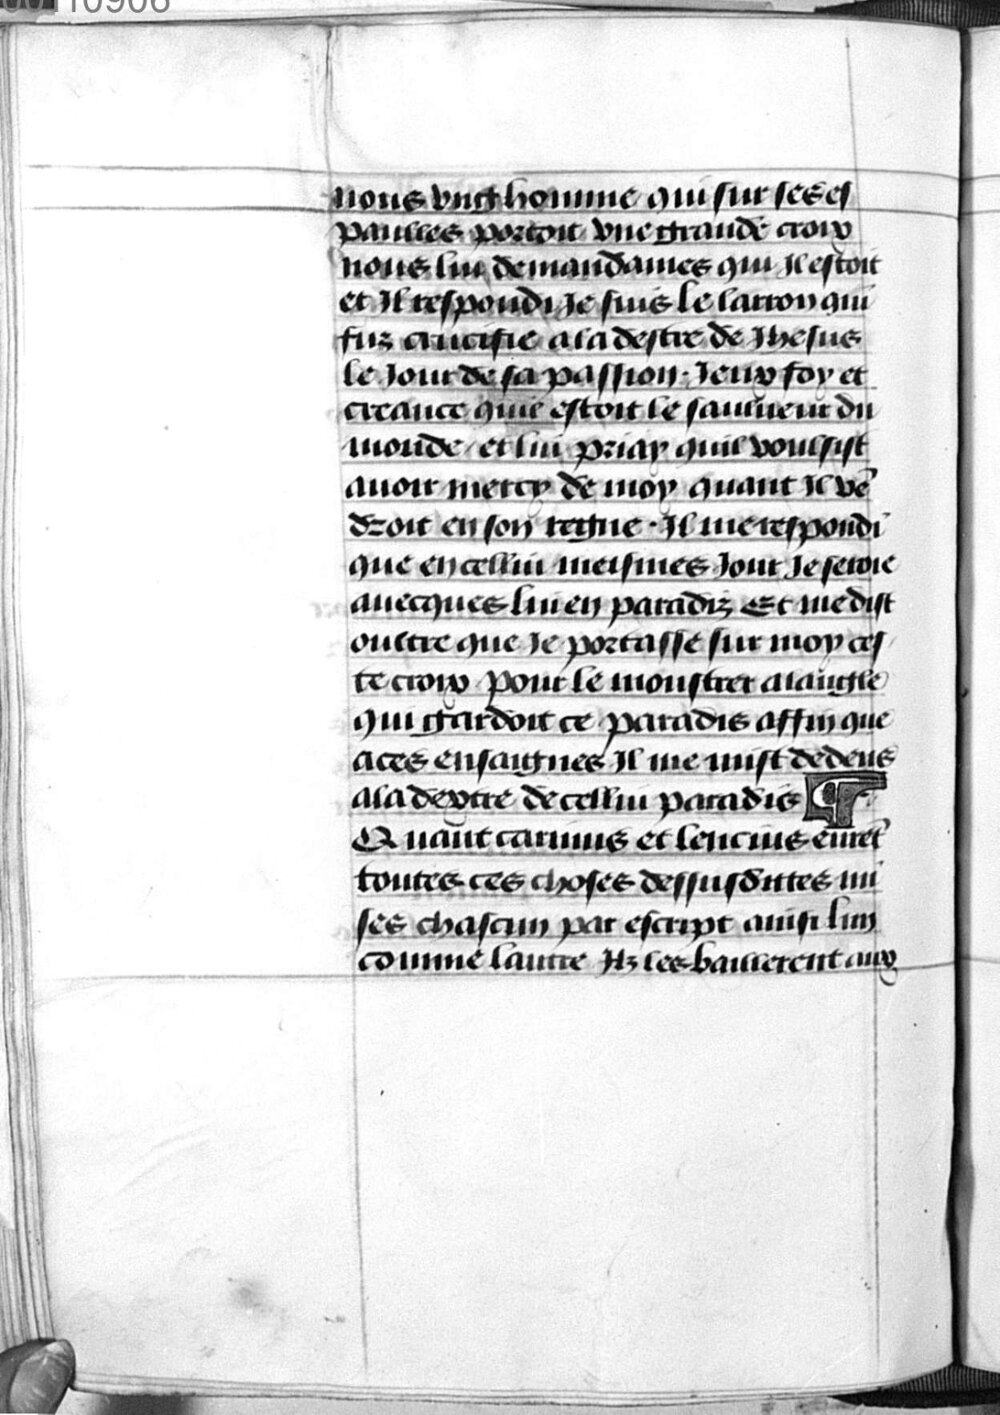 00110906
nous vng homme qui sur ses es
paulles portoit vne grande croix
nous lui demandames qui Il estoit
et Il respondi Je suis le larron qui
fuz crucifie a la destre de Jhesus
le Jour de sa passion. Jeux foy et
creance quil estoit le sauueur du
monde / et lui priay quil voulsist
auoir mercy de moy quant Il vē
droit en son regne. Il me respondi
que en cellui meismes Jour Je seroie
auecques lui en paradiz Et me dist
oultre que Je portasse sur moy ces
te croix pour le monstrer a langle
qui gardoit ce paradis affin que
a ces ensaignes Il me mist dedens
a la dextre de cellui paradis ¶
Quant carinus et lencius eurēt
toutes ces choses dessusdittes mi
ses chascun par escript ainsi lun
comme lautre Ilz les baillerent aux